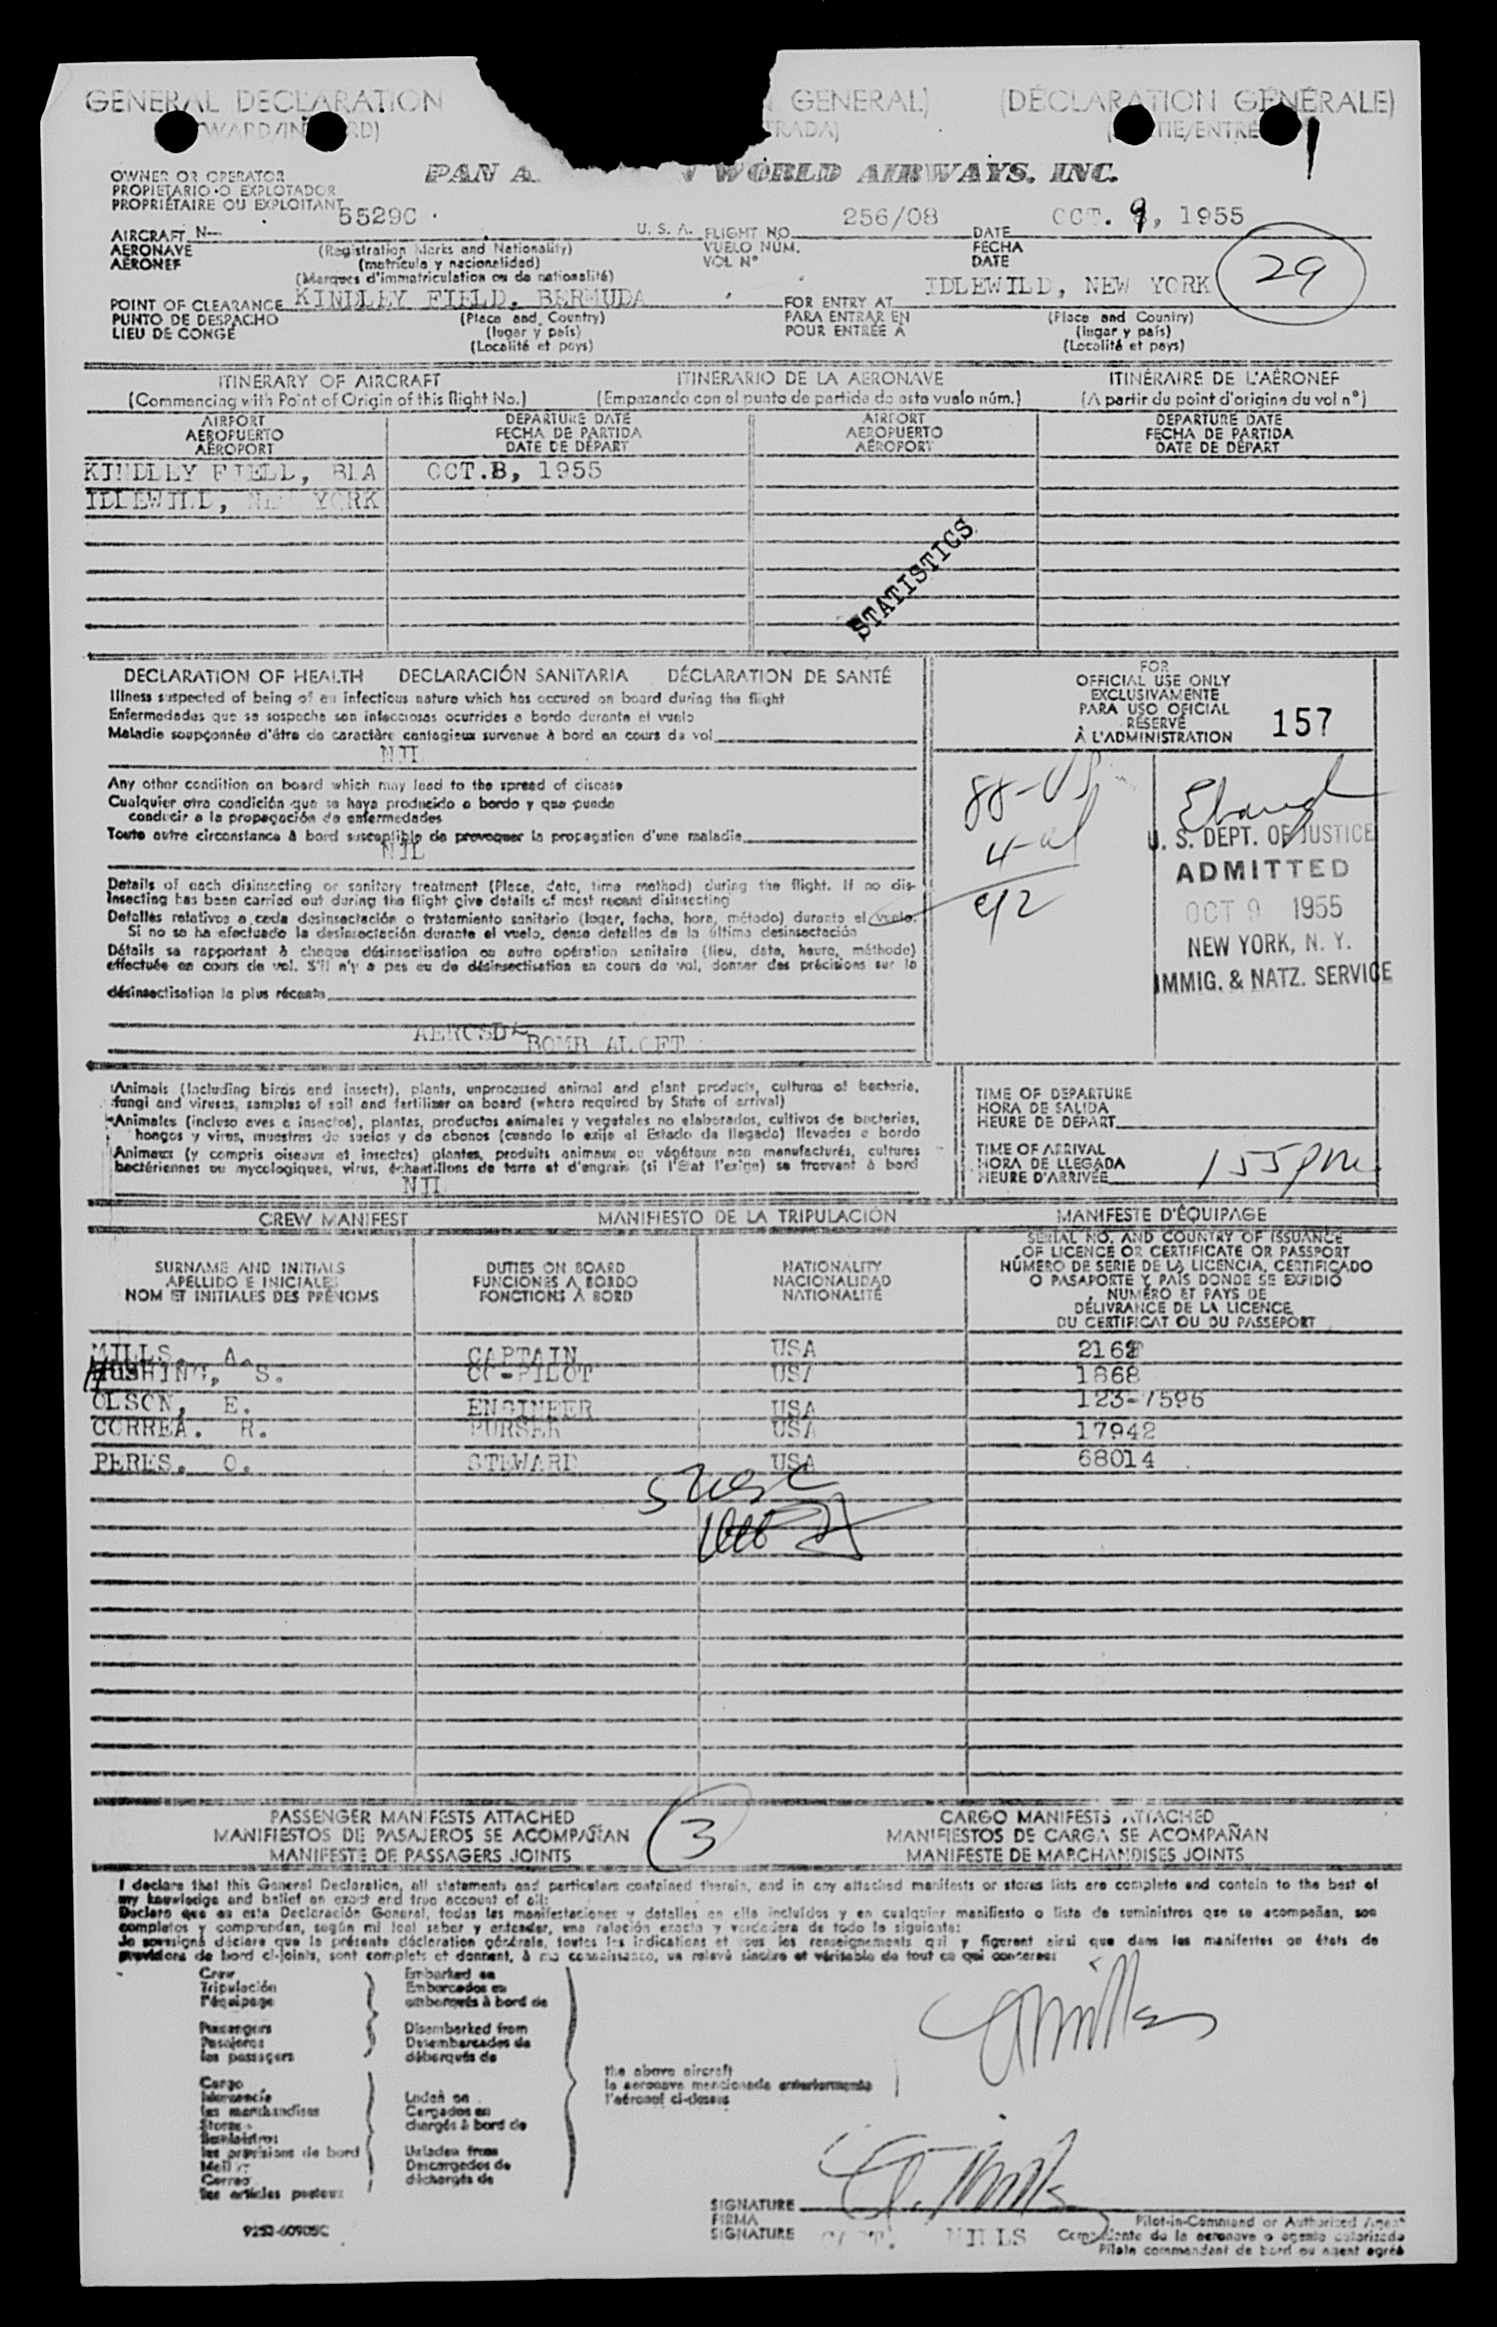 GENERAL DECLARATION GENERAL) (DÉCLARATION GÉNÉRALE)
OWNER OR OPERATOR
PROPIETARIO O EXPLOTADOR
PROPRIÉTAIRE OU EXPLOITANT
PAN A WORLD AIRWAYS, INC.
AIRCRAFT N— 5529C U. S. A. FLIGHT NO. 256/08 DATE OCT. 9, 1955
AERONAVE (Registration Marks and Nationality) VUELO NÚM. FECHA
AÉRONEF (matrícula y nacionalidad) VOL Nº DATE
(Marques d'immatriculation ou de nationalité)
POINT OF CLEARANCE KINDLEY FIELD, BERMUDA FOR ENTRY AT IDLEWILD, NEW YORK 29
PUNTO DE DESPACHO (Place and Country) PARA ENTRAR EN (Place and Country)
LIEU DE CONGÉ (lugar y país) POUR ENTRÉE À (lugar y país)
(Localité et pays) (Localité et pays)
ITINERARY OF AIRCRAFT ITINERARIO DE LA AERONAVE ITINÉRAIRE DE L'AÉRONEF
(Commencing with Point of Origin of this flight No.) (Empezando con el punto de partida de esta vuelo núm.) (A partir du point d'origine du vol nº)
AIRPORT DEPARTURE DATE AIRPORT DEPARTURE DATE
AEROPUERTO FECHA DE PARTIDA AEROPUERTO FECHA DE PARTIDA
AÉROPORT DATE DE DÉPART AÉROPORT DATE DE DÉPART
KINDLEY FIELD, BDA OCT.8, 1955
IDLEWILD, NEW YORK
STATISTICS
DECLARATION OF HEALTH DECLARACIÓN SANITARIA DÉCLARATION DE SANTÉ
Illness suspected of being of an infectious nature which has occured on board during the flight
Enfermedades que se sospeche son infecciosas ocurridas a bordo durante el vuelo
Maladie soupçonnée d'être de caractère contagieux survenue à bord en cours de vol
NIL
Any other condition on board which may lead to the spread of disease
Cualquier otra condición que se haya producido a bordo y que puede
conducir a la propagación de enfermedades
Toute autre circonstance à bord susceptible de provoquer la propagation d'une maladie
NIL
Details of each disinsecting or sanitary treatment (Place, date, time method) during the flight. If no dis-
insecting has been carried out during the flight give details of most recent disinsecting
Detalles relativos a cada desinsectación o tratamiento sanitario (lugar, fecha, hora, método) durante el vuelo.
Si no se ha efectuado la desinsectación durante el vuelo, dense detalles de la última desinsectación
Détails se rapportant à chaque désinsectisation ou autre opération sanitaire (lieu, date, heure, méthode)
effectuée en cours de vol. S'il n'y a pas eu de désinsectisation en cours de vol, donner des précisions sur la
désinsectisation la plus récente
BOMB ALOFT
FOR
OFFICIAL USE ONLY
EXCLUSIVAMENTE
PARA USO OFICIAL
RÉSERVÉ
À L'ADMINISTRATION 157
88-US
4-al
92
U. S. DEPT. OF JUSTICE
ADMITTED
OCT 9 1955
NEW YORK, N. Y.
IMMIG. & NATZ. SERVICE
Animals (including birds and insects), plants, unprocessed animal and plant products, cultures of bacteria,
fungi and viruses, samples of soil and fertilizer on board (where required by State of arrival)
Animales (incluso aves e insectos), plantas, productos animales y vegetales no elaborados, cultivos de bacterias,
hongos y virus, muestras de suelos y de abonos (cuando lo exija el Estado de llegada) llevados a bordo
Animaux (y compris oiseaux et insectes) plantes, produits animaux ou végétaux non manufacturés, cultures
bactériennes ou mycologiques, virus, échantillons de terre et d'engrais (si l'État l'exige) se trouvant à bord
NIL
TIME OF DEPARTURE
HORA DE SALIDA
HEURE DE DÉPART
TIME OF ARRIVAL
HORA DE LLEGADA 155pm
HEURE D'ARRIVÉE
CREW MANIFEST MANIFIESTO DE LA TRIPULACIÓN MANIFESTE D'ÉQUIPAGE
SURNAME AND INITIALS DUTIES ON BOARD NATIONALITY SERIAL NO. AND COUNTRY OF ISSUANCE
APELLIDO E INICIALES FUNCIONES A BORDO NACIONALIDAD OF LICENCE OR CERTIFICATE OR PASSPORT
NOM ET INITIALES DES PRÉNOMS FONCTIONS À BORD NATIONALITÉ NÚMERO DE SERIE DE LA LICENCIA, CERTIFICADO
O PASAPORTE Y PAÍS DONDE SE EXPIDIÓ
NUMÉRO ET PAYS DE
DÉLIVRANCE DE LA LICENCE
DU CERTIFICAT OU DU PASSEPORT
MILLS. A. CAPTAIN USA
HUSHING, S. CO-PILOT USA 1868
OLSON, E. ENGINEER USA 123-7596
CORREA. R. PURSER USA 17942
PERES. O. STEWARD USA 68014
PASSENGER MANIFESTS ATTACHED 3 CARGO MANIFESTS ATTACHED
MANIFIESTOS DE PASAJEROS SE ACOMPAÑAN MANIFIESTOS DE CARGA SE ACOMPAÑAN
MANIFESTE DE PASSAGERS JOINTS MANIFESTE DE MARCHANDISES JOINTS
I declare that this General Declaration, all statements and particulars contained therein, and in any attached manifests or stores lists are complete and contain to the best of
my knowledge and belief an exact and true account of all:
Declaro que en esta Declaración General, todas las manifestaciones y detalles en ella incluídos y en cualquier manifiesto o lista de suministros que se acompañan, son
completos y comprenden, según mi leal saber y entender, una relación exacta y verdadera de todo lo siguiente:
Je soussigné déclare que la présente déclaration générale, toutes les indications et tous les renseignements qui y figurent ainsi que dans les manifestes ou états de
provisions de bord ci-joints, sont complets et donnent, à ma connaissance, un relevé sincère et véritable de tout ce qui concerne:
Crew Embarked on
Tripulación Embarcados en
l'équipage embarqués à bord de
Passengers Disembarked from
Pasajeros Desembarcados de
les passagers débarqués de
the above aircraft
la aeronave mencionada anteriormente
l'aéronef ci-dessus
Cargo
Mercancía Laden on
les marchandises Cargados en
Stores chargés à bord de
Suministros
les provisions de bord Unladen from
Mail Descargados de
Correo déchargés de
les articles postaux
A Mills
A. Mills
SIGNATURE
FIRMA Pilot-in-Command or Authorized Agent
SIGNATURE CAPT. MILLS Comandante de la aeronave o agente autorizado
Pilote commandant de bord ou agent agréé
9252-60905C